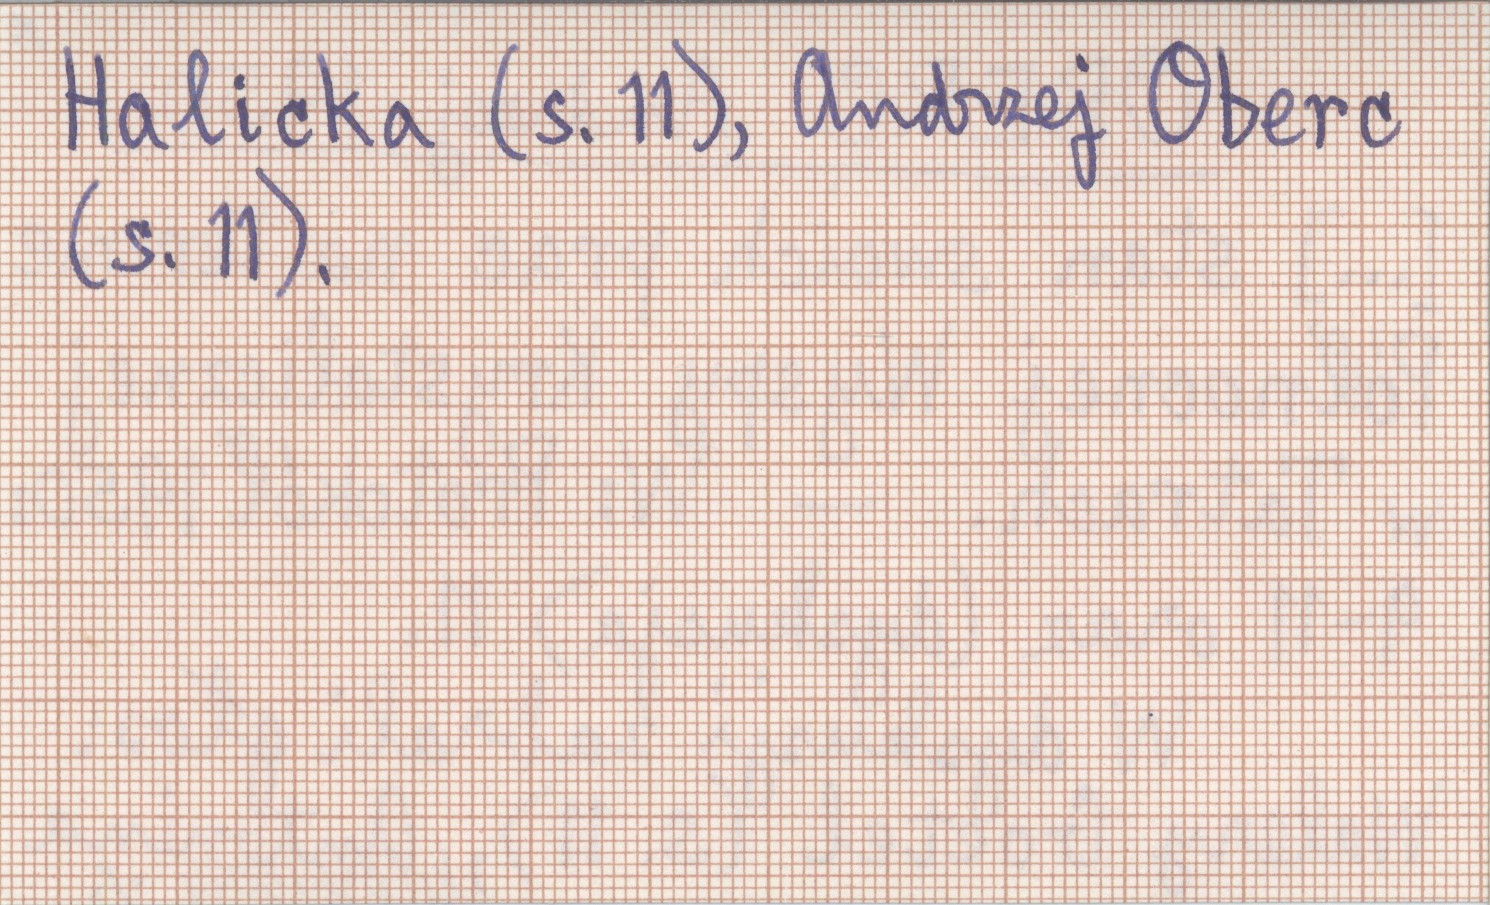 Halicka (s. 11), Andrzej Oberc
(s. 11).